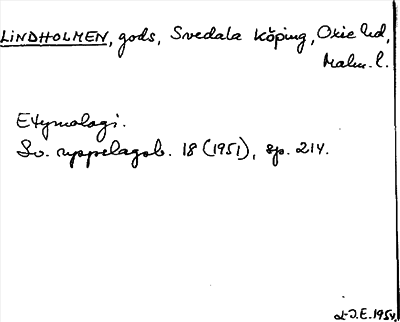 LINDHOLMEN, gods, Svedala köping, Oxie hd,
Malm. l.
Etymologi.
Sv. uppslagsb. 18 (1951), sp. 214.
J.E. 1954.